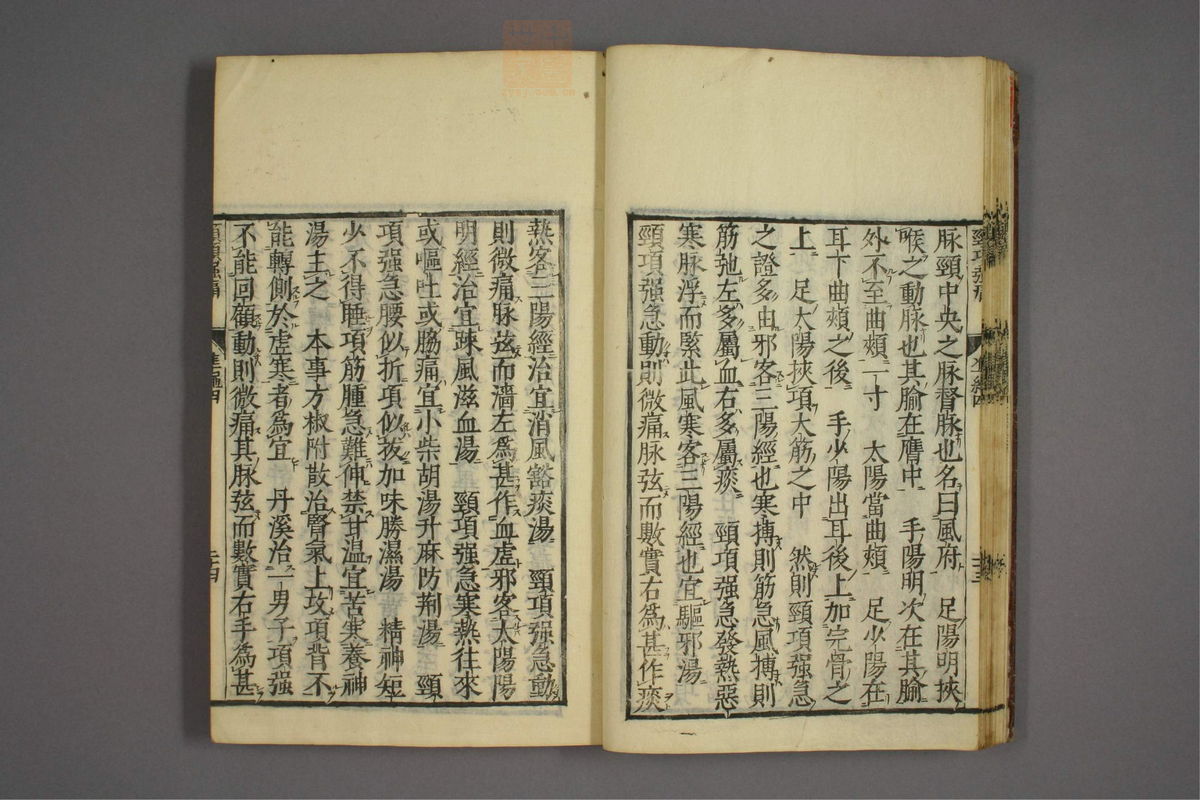 脉頸中央之脉督脉也名曰風府　足陽明挾
喉之動脉也其腧在膺中　手陽明次在其腧
外不至曲頰一寸　太陽當曲頰　足少陽在
耳下曲頰之後　手少陽出耳後上加完骨之
上　足太陽挾項大筋之中　然則頸項强急
之證多由邪客三陽經也寒搏則筋急風搏則
筋弛左多屬血右多屬痰　頸項强急發熱惡
寒脉浮而緊此風寒客三陽經也宜驅邪湯
頸項强急動則微痛脉弦而數實右為甚作痰
熱客三陽經治宜消風豁痰湯　頸項强急動
則微痛脉弦而濇左為甚作血虛邪客太陽陽
明經治宜踈風滋血湯　頸項强急寒熱往來
或嘔吐或脇痛宜小柴胡湯升麻防荆湯　頸
項强急腰似折項似拔加味勝濕湯　精神短
少不得睡項筋腫急難伸禁甘温宜苦寒養神
湯主之　本事方椒附散治腎氣上攻項背不
能轉側於虛寒者為宜　丹溪治一男子項强
不能回顧動則微痛其脉弦而數實右手為甚
頸項强痛